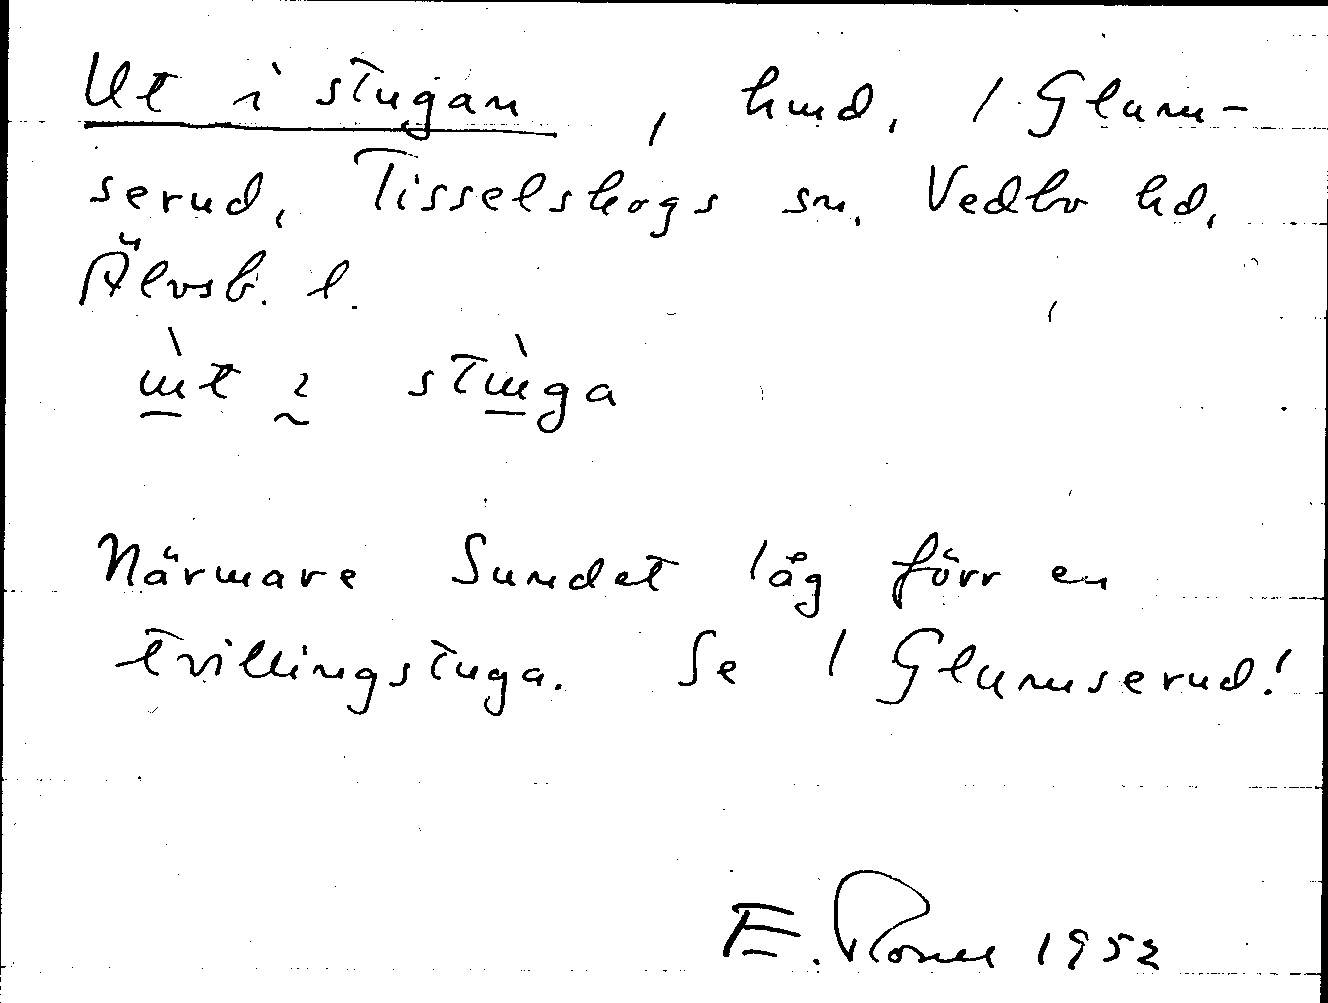 Ut i stugan, hmd, 1 Glum-
serud, Tisselskogs sn, Vedbo hd,
Älvsb. l.
Närmare Sundet låg förr en
tvillingstuga. Se 1 Glumserud!
E. 1952